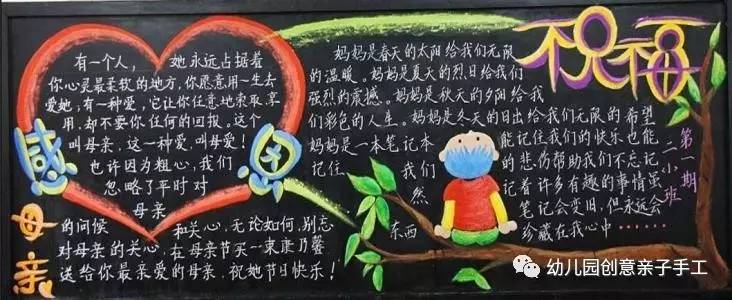 感恩
母亲
有一个人， 她永远占据着
你心灵最柔软的地方,你愿意用一生去
爱她;有一种爱,它让你任意地索取,享
用,却不要你任何的回报。这个
叫母亲,这一种爱,叫母爱！
也许因为粗心,我们
忽略了平时对
母亲
的问候 和关心,无论如何,别忘
对母亲的关心,在母亲节买一束康乃馨
送给你最亲爱的母亲,祝她节日快乐！
祝福
妈妈是春天的太阳给我们无限
的温暖。妈妈是夏天的烈日给我们
强烈的震撼。妈妈是秋天的夕阳给我
们彩色的人生。妈妈是冬天的日出给我们无限的希望
妈妈是一本笔记本 能记住我们的快乐也能
记住 我们 的悲伤帮助我们不忘记
然 记着许多有趣的事情虽
东西 笔记会变旧,但永远会
珍藏在我心中……
第一期
二小班
幼儿园创意亲子手工